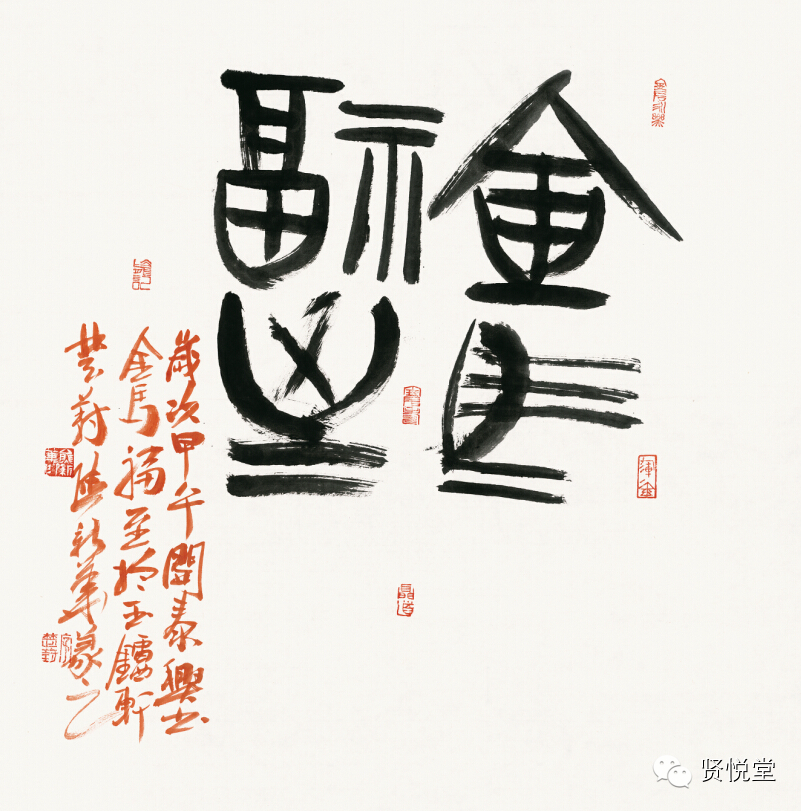 金馬
福至
歲次甲午開泰興书
金馬福至於玉鐳軒
楚葑熊新華篆之
贤悦堂